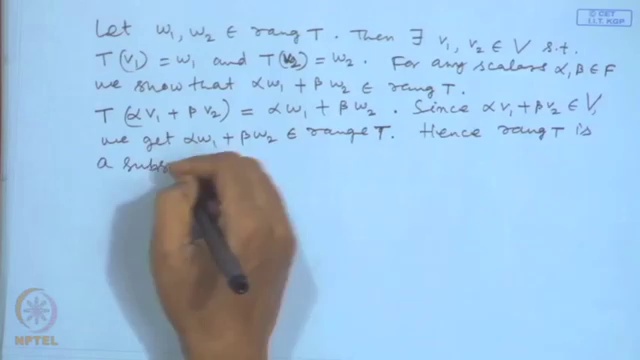 © CET
I.I.T. KGP
Let w₁, w₂ ∈ rang T. Then ∃ v₁, v₂ ∈ V s.t.
T(v₁) = w₁ and T(v₂) = w₂. For any scalars α, β ∈ F
we show that αw₁ + βw₂ ∈ rang T.
T(αv₁ + βv₂) = αw₁ + βw₂. Since αv₁ + βv₂ ∈ V,
we get αw₁ + βw₂ ∈ range T. Hence rang T is
a subs
NPTEL